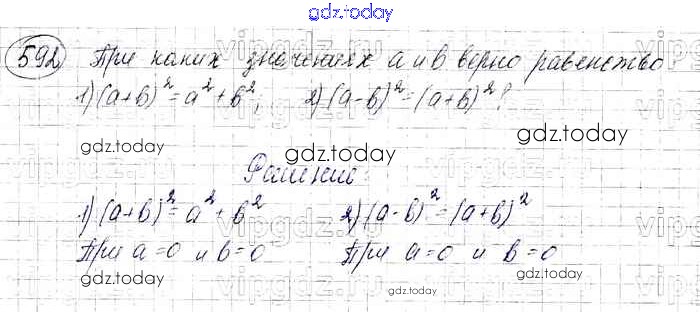 gdz.today
592 При каких значениях а и в верно равенство
1) (а+в)² = а² + в², 2) (а-в)² = (а+в)²?
gdz.today
gdz.today
gdz.today
Решение:
1) (а+в)² = а² + в² 2) (а-в)² = (а+в)²
При а=0 и в=0 При а=0 и в=0
gdz.today
gdz.today
gdz.today
vipgdz.today